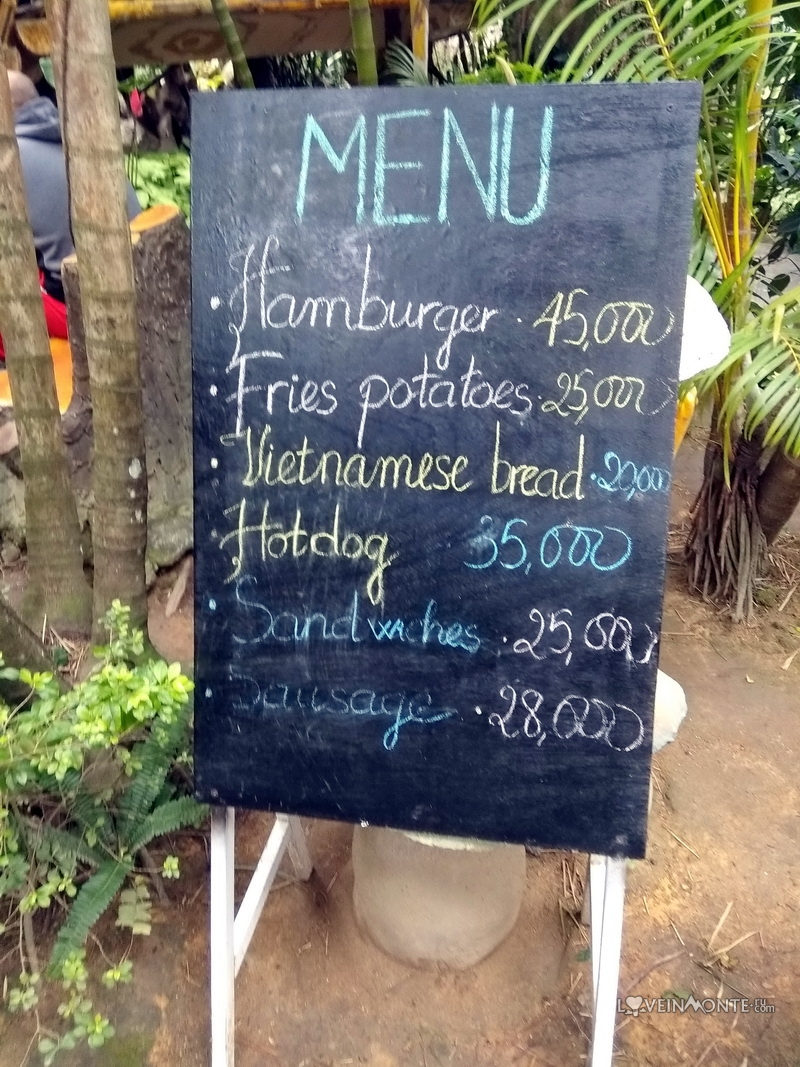 MENU
· Hamburger · 45,000
· Fries potatoes · 25,000
· Vietnamese bread · 20,000
· Hotdog 35,000
· Sandwiches · 25,000
· Sausage · 28,000
LOVEINMONTE.ru .com